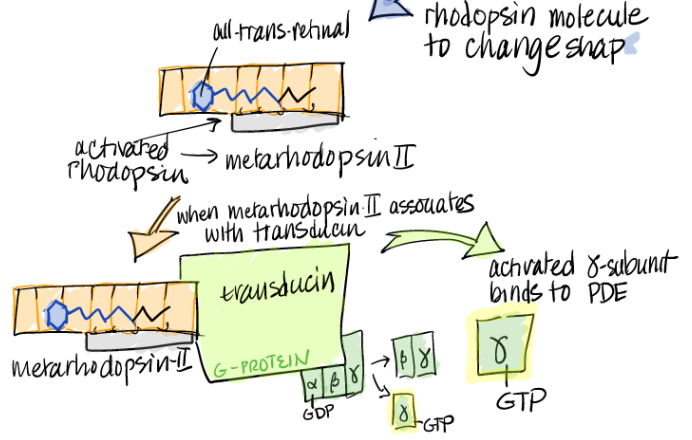 rhodopsin molecule
to change shap
all-trans-retinal
activated
rhodopsin
metarhodopsin II
when metarhodopsin-II assouates
with transducin
activated γ-subunit
binds to PDE
transducin
metarhodopsin-II
G-PROTEIN
α β γ
GDP
β γ
γ
GTP
γ
GTP